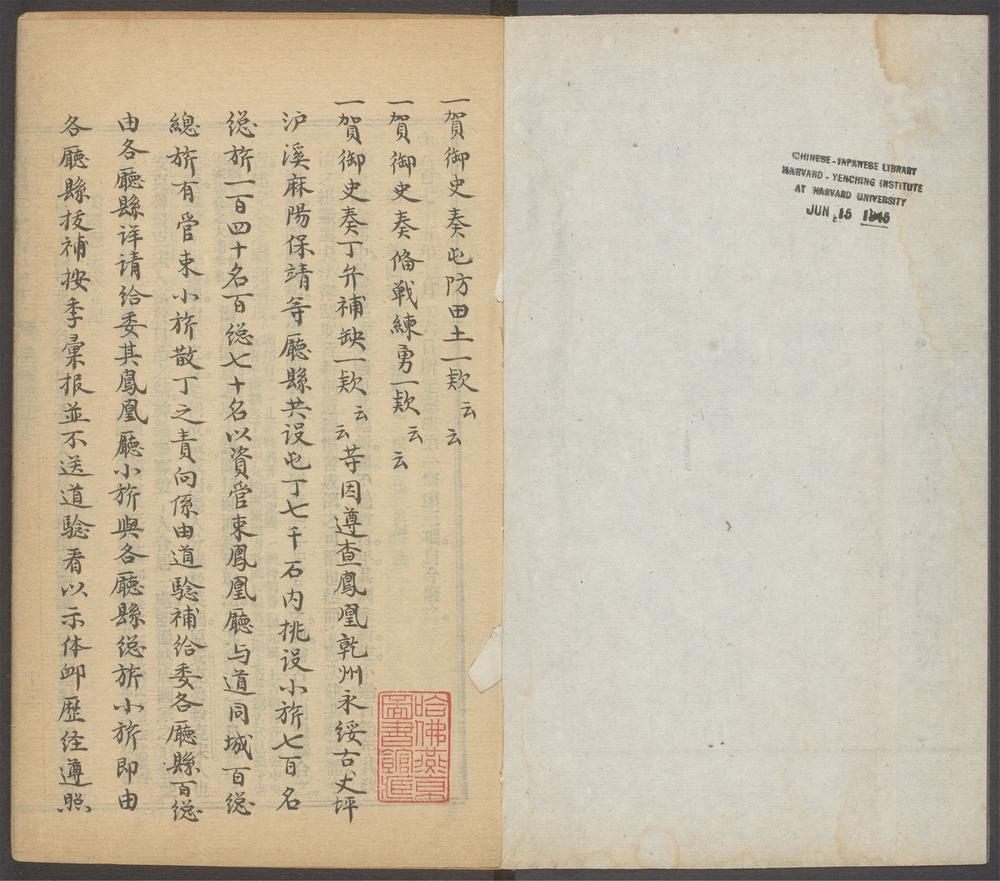 CHINESE-JAPANESE LIBRARY
HARVARD-YENCHING INSTITUTE
AT HARVARD UNIVERSITY
JUN 15 1946
一賀御史奏屯防田土一欵云云
一賀御史奏俻戰練勇一欵云云
一賀御史奏丁弁補缺一欵云云䓁因遵查鳳凰乾州永綏古丈坪
沪溪麻陽保靖等廳縣共设屯丁七千石内挑设小旂七百名
緫旂一百四十名百緫七十名以資管束鳳凰廳与道同城百緫
總旂有管束小旂散丁之責向係由道騐補给委各廳縣百緫
由各廳縣详请给委其鳳凰廳小旂與各廳縣緫旂小旂即由
各廳縣拔補按季彚报並不送道騐看以示体卹歷经遵照
哈佛燕京
圖書館